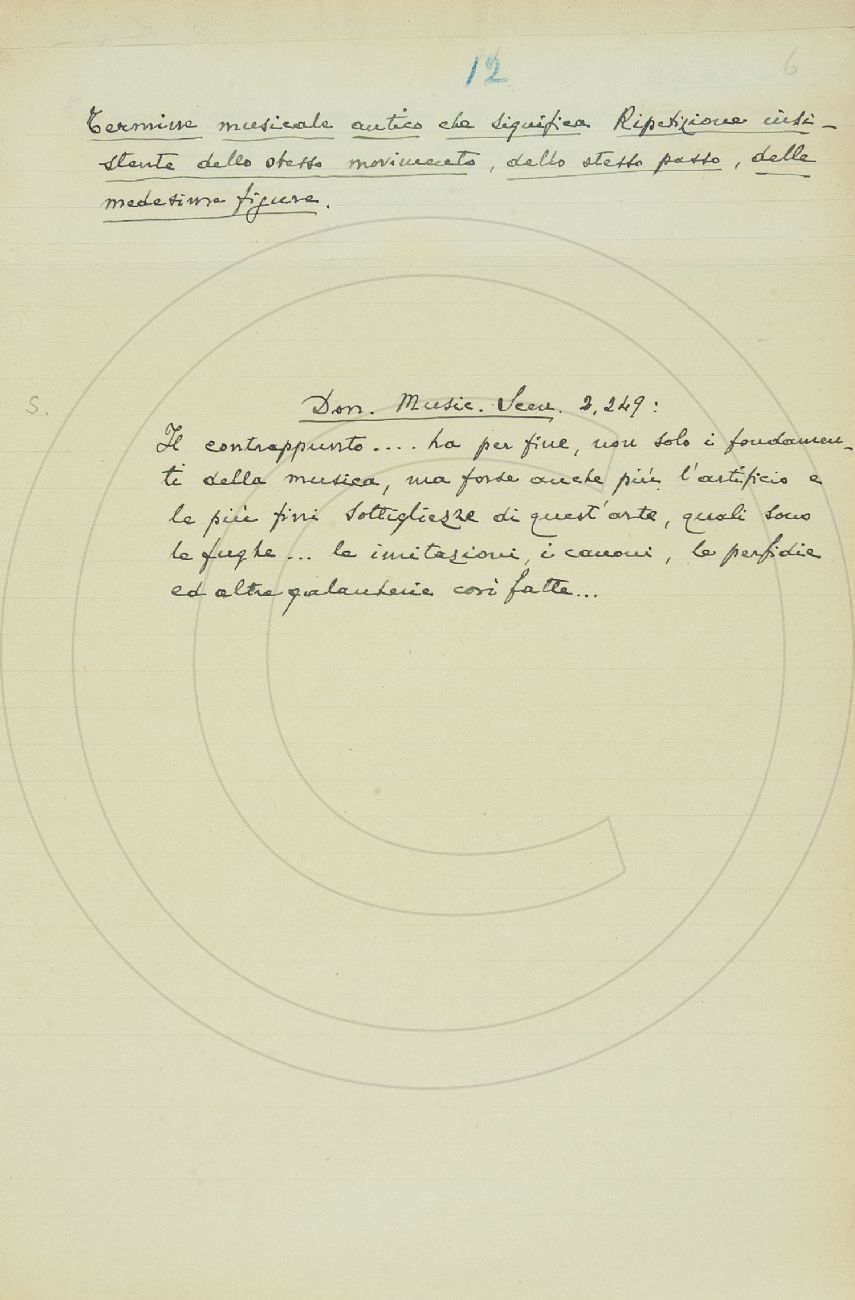 12
6
Termine musicale antico che significa Ripetizione insi-
stente dello stesso movimento, dello stesso passo, delle
medesime figure.
S.
Don. Music. Scen. 2, 249:
Il contrappunto .... ha per fine, non solo i fondamen-
ti della musica, ma forse anche più l'artificio e
le più fini sottigliezze di quest'arte, quali sono
le fughe ... le imitazioni, i canoni, le perfidie
ed altre galanterie così fatte...